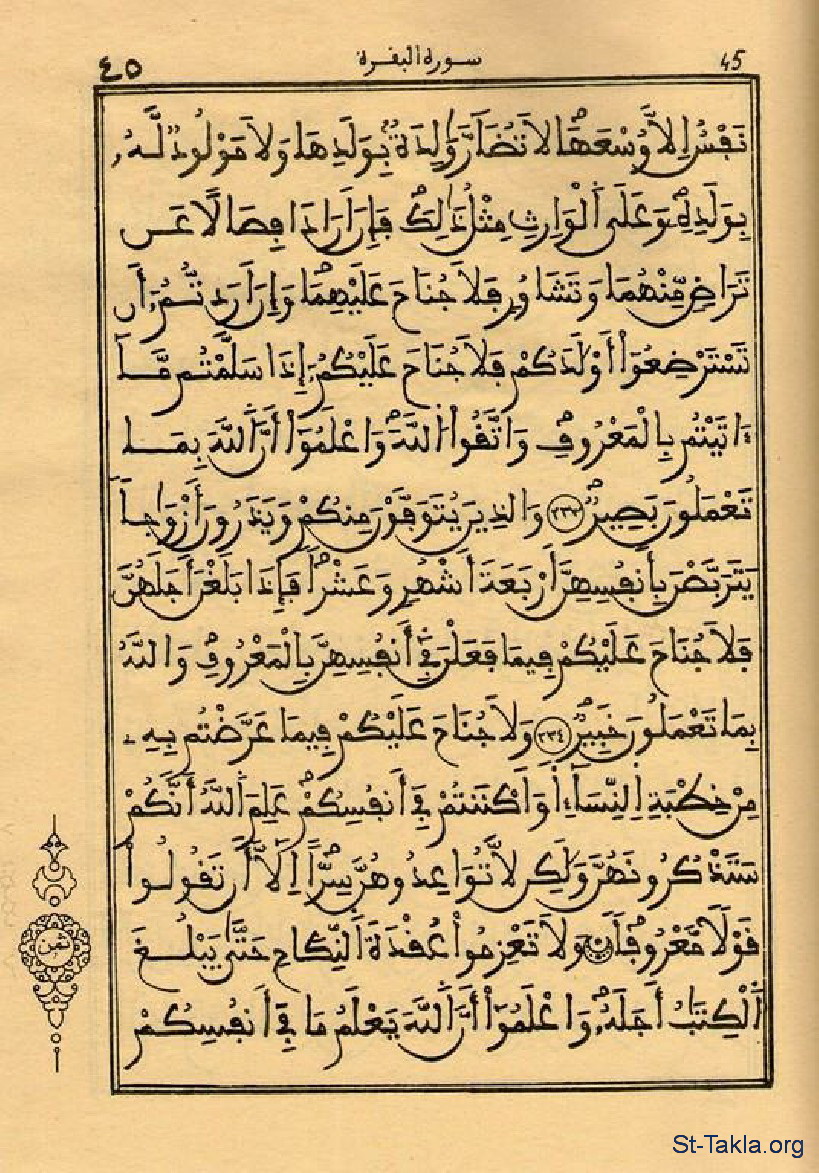 45 سورة البقرة ٤٥
نَفْسٌ اِلَّا وُسْعَهَا لَا تُضَآرَّ وَٰلِدَةٌ بِوَلَدِهَا وَلَا مَوْلُودٌ لَّهُۥ
بِوَلَدِهِۦ وَعَلَى اَلْوَارِثِ مِثْلُ ذَٰلِكَ فَإِنَ اَرَادَا فِصَالًا عَن
تَرَاضٍ مِّنْهُمَا وَتَشَاوُرٍ فَلَا جُنَاحَ عَلَيْهِمَا وَإِنَ اَرَدتُّمُۥٓ أَن
تَسْتَرْضِعُوٓاْ أَوْلَٰدَكُمْ فَلَا جُنَاحَ عَلَيْكُمُۥٓ إِذَا سَلَّمْتُم مَّآ
ءَاتَيْتُم بِالْمَعْرُوفِ وَاتَّقُواْ اَللَّهَ وَاعْلَمُوٓاْ أَنَّ اَللَّهَ بِمَا
تَعْمَلُونَ بَصِيرٌ ٢٣٣ وَالذِينَ يُتَوَفَّوْنَ مِنكُمْ وَيَذَرُونَ أَزْوَٰجاً
يَتَرَبَّصْنَ بِأَنفُسِهِنَّ أَرْبَعَةَ أَشْهُرٍ وَعَشْراً فَإِذَا بَلَغْنَ أَجَلَهُنَّ
فَلَا جُنَاحَ عَلَيْكُمْ فِيمَا فَعَلْنَ فِےٓ أَنفُسِهِنَّ بِالْمَعْرُوفِ وَاللَّهُ
بِمَا تَعْمَلُونَ خَبِيرٌ ٢٣٤ وَلَا جُنَاحَ عَلَيْكُمْ فِيمَا عَرَّضْتُم بِهِۦ
مِنْ خِطْبَةِ اِلنِّسَآءِ اَوَ اَكْنَنتُمْ فِےٓ أَنفُسِكُمْ عَلِمَ اَللَّهُ أَنَّكُمْ
سَتَذْكُرُونَهُنَّ وَلَٰكِن لَّا تُوَاعِدُوهُنَّ سِرّاً اِلَّآ أَن تَقُولُواْ
قَوْلًا مَّعْرُوفاً وَلَا تَعْزِمُواْ عُقْدَةَ اَلنِّكَاحِ حَتَّىٰ يَبْلُغَ
اَلْكِتَٰبُ أَجَلَهُۥ وَاعْلَمُوٓاْ أَنَّ اَللَّهَ يَعْلَمُ مَا فِےٓ أَنفُسِكُمْ
ثمن
St-Takla.org